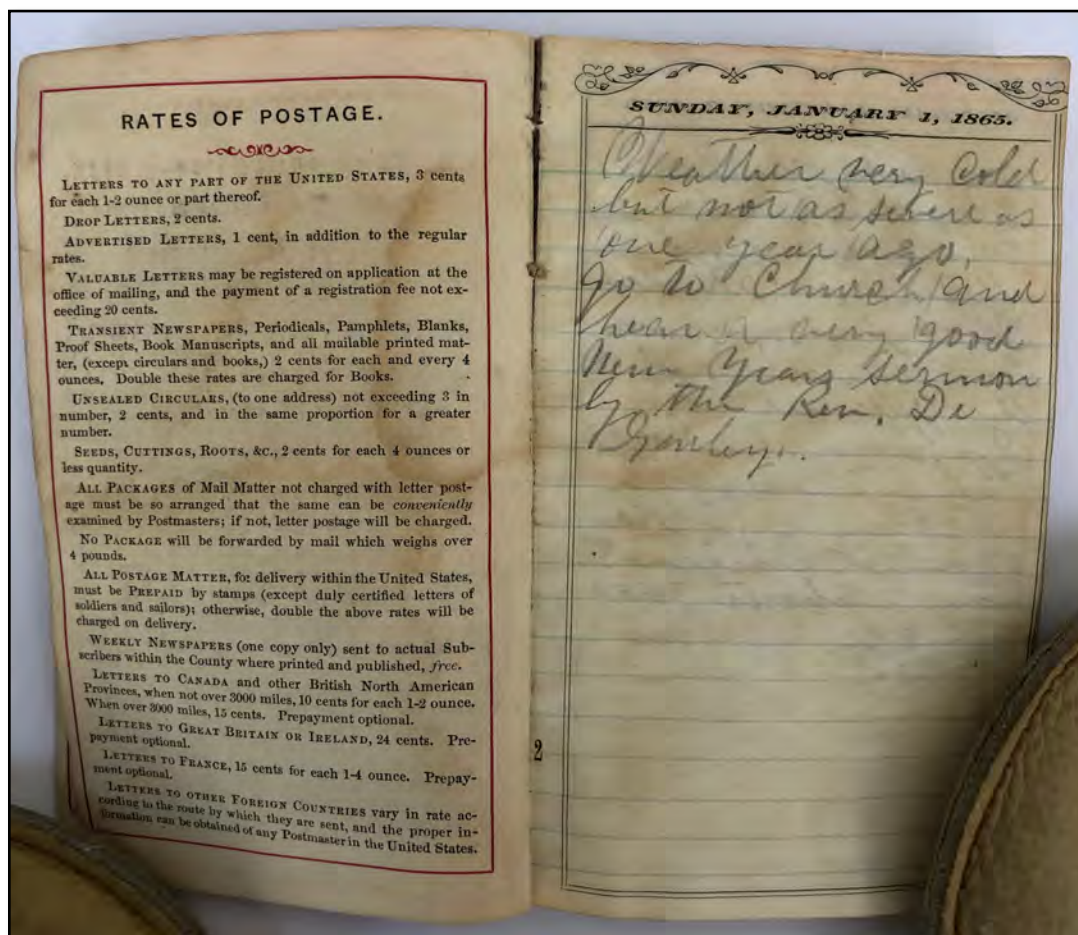 RATES OF POSTAGE.
LETTERS TO ANY PART OF THE UNITED STATES, 3 cents
for each 1-2 ounce or part thereof.
DROP LETTERS, 2 cents.
ADVERTISED LETTERS, 1 cent, in addition to the regular
rates.
VALUABLE LETTERS may be registered on application at the
office of mailing, and the payment of a registration fee not ex-
ceeding 20 cents.
TRANSIENT NEWSPAPERS, Periodicals, Pamphlets, Blanks,
Proof Sheets, Book Manuscripts, and all mailable printed mat-
ter, (except circulars and books,) 2 cents for each and every 4
ounces. Double these rates are charged for Books.
UNSEALED CIRCULARS, (to one address) not exceeding 3 in
number, 2 cents, and in the same proportion for a greater
number.
SEEDS, CUTTINGS, ROOTS, &C., 2 cents for each 4 ounces or
less quantity.
ALL PACKAGES of Mail Matter not charged with letter post-
age must be so arranged that the same can be conveniently
examined by Postmasters; if not, letter postage will be charged.
NO PACKAGE will be forwarded by mail which weighs over
4 pounds.
ALL POSTAGE MATTER, for delivery within the United States,
must be PREPAID by stamps (except duly certified letters of
soldiers and sailors); otherwise, double the above rates will be
charged on delivery.
WEEKLY NEWSPAPERS (one copy only) sent to actual Sub-
scribers within the County where printed and published, free.
LETTERS TO CANADA and other British North American
Provinces, when not over 3000 miles, 10 cents for each 1-2 ounce.
When over 3000 miles, 15 cents. Prepayment optional.
LETTERS TO GREAT BRITAIN OR IRELAND, 24 cents. Pre-
payment optional.
LETTERS TO FRANCE, 15 cents for each 1-4 ounce. Prepay-
ment optional.
LETTERS TO OTHER FOREIGN COUNTRIES vary in rate ac-
cording to the route by which they are sent, and the proper in-
formation can be obtained of any Postmaster in the United States.
2
SUNDAY, JANUARY 1, 1865.
Weather very cold
but not as severe as
one year ago.
go to Church and
hear a very good
New Years sermon
by the Rev. Dr